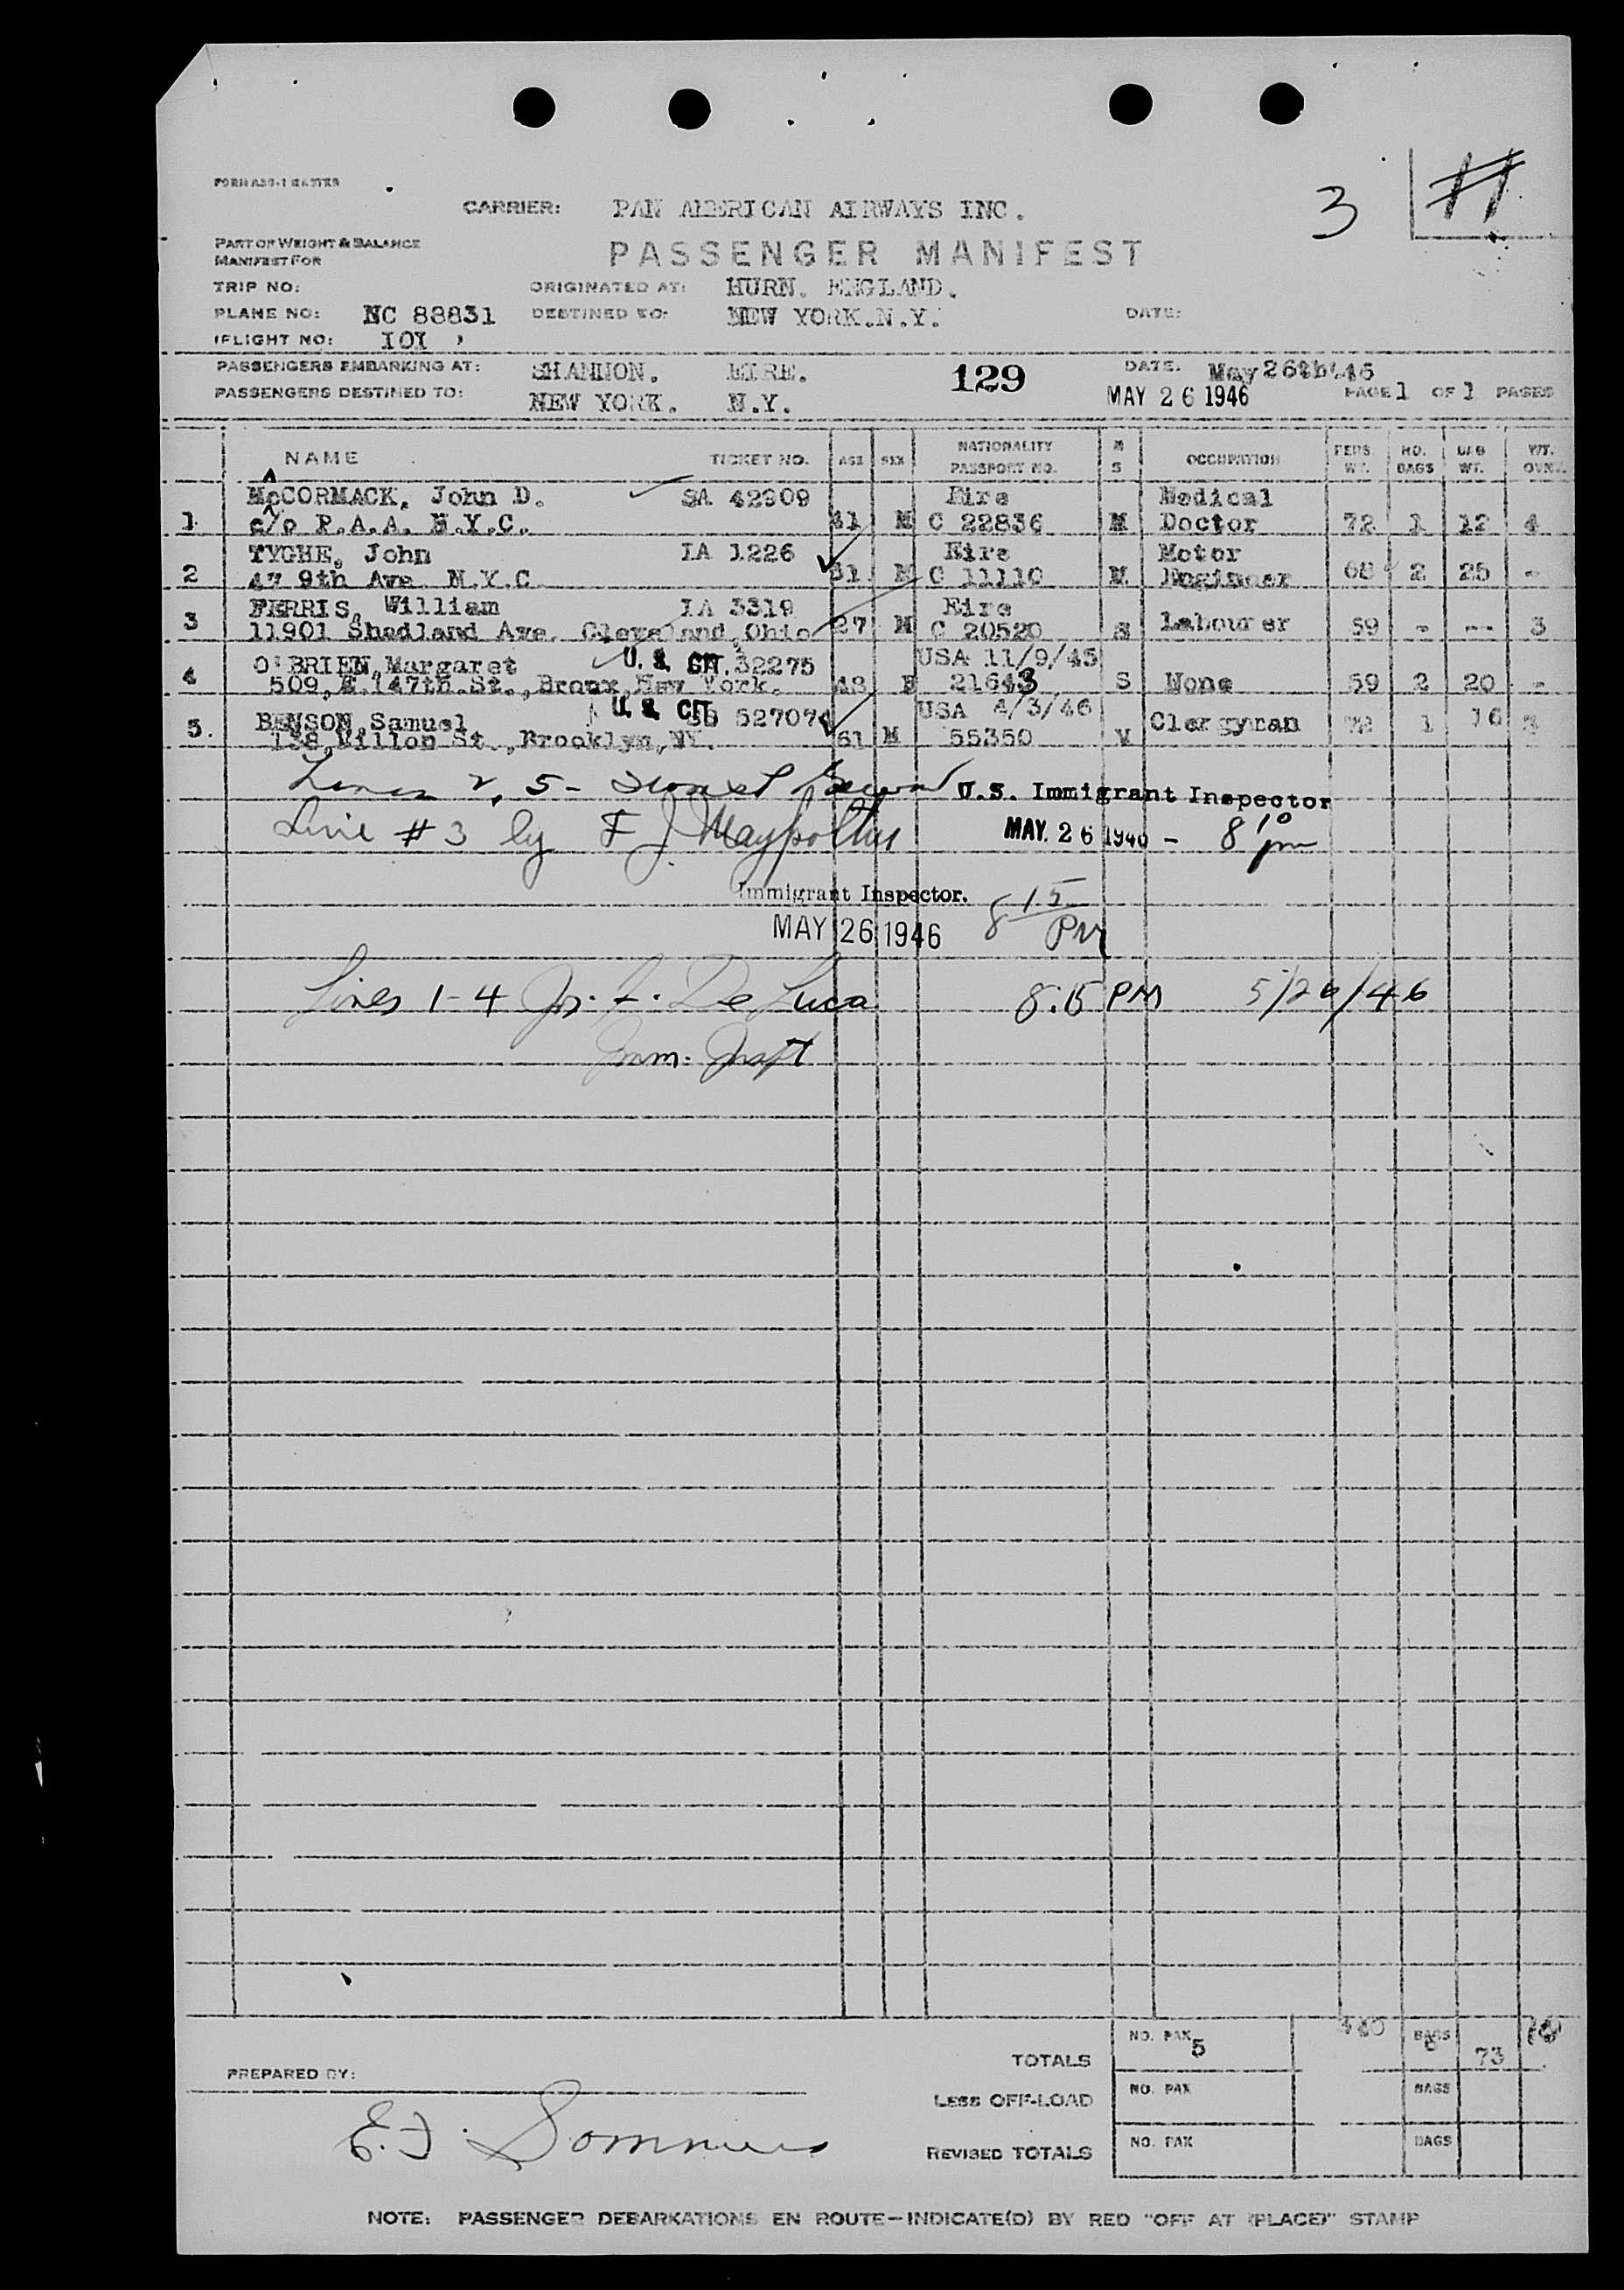 3
CARRIER: PAN AMERICAN AIRWAYS INC.
PART OF WEIGHT & BALANCE
MANIFEST FOR
PASSENGER MANIFEST
TRIP NO: ORIGINATED AT: HURN. ENGLAND.
PLANE NO: NC 88831 DESTINED TO: NEW YORK.N.Y. DATE:
FLIGHT NO: IOI
PASSENGERS EMBARKING AT: SHANNON. EIRE. 129 DATE. May 26th'46
PASSENGERS DESTINED TO: NEW YORK. N.Y. MAY 26 1946 PAGE 1 OF 1 PAGES
NAME TICKET NO. AGE SEX NATIONALITY PASSPORT NO. M S OCCUPATION PERS. WT. NO. BAGS BAG WT. WT.
McCORMACK, John D. SA 42909 Eire Medical
1 c/o P.A.A. N.Y.C. 41 M C 22836 M Doctor 72 1 12 4
TYGHE, John IA 1226 Eire Motor
2 47 9th Ave N.Y.C 31 M C 11110 M Engineer 68 2 25 -
FERRIS, William IA 3319 Eire
3 11901 Shadland Ave. Cleveland, Ohio 27 M C 20520 S Labourer 59 - -- 3
O'BRIEN, Margaret U. S. CIT. 32275 USA 11/9/45
4 509, E.147th.St., Bronx, New York. 48 F 21643 S None 59 2 20 -
BENSON, Samuel U. S. CIT. 527074 USA 4/3/46
5. St., Brooklyn, NY. 61 M 55350 Clergyman 1 16 3
Lines 2, 5 - U.S. Immigrant Inspector
Line #3 by F J MAY 26 1946 - 8 10 pm
Immigrant Inspector.
MAY 26 1946 8 15 PM
Lines 1-4 De Luca 8:15 PM 5/26/46
Imm. Inspt
TOTALS NO. PAX 5 BAGS 73
PREPARED BY:
LESS OFF-LOAD NO. PAX BAGS
E.J. Sommers
REVISED TOTALS NO. PAX BAGS
NOTE: PASSENGER DEBARKATIONS EN ROUTE—INDICATE(D) BY RED "OFF AT (PLACE)" STAMP